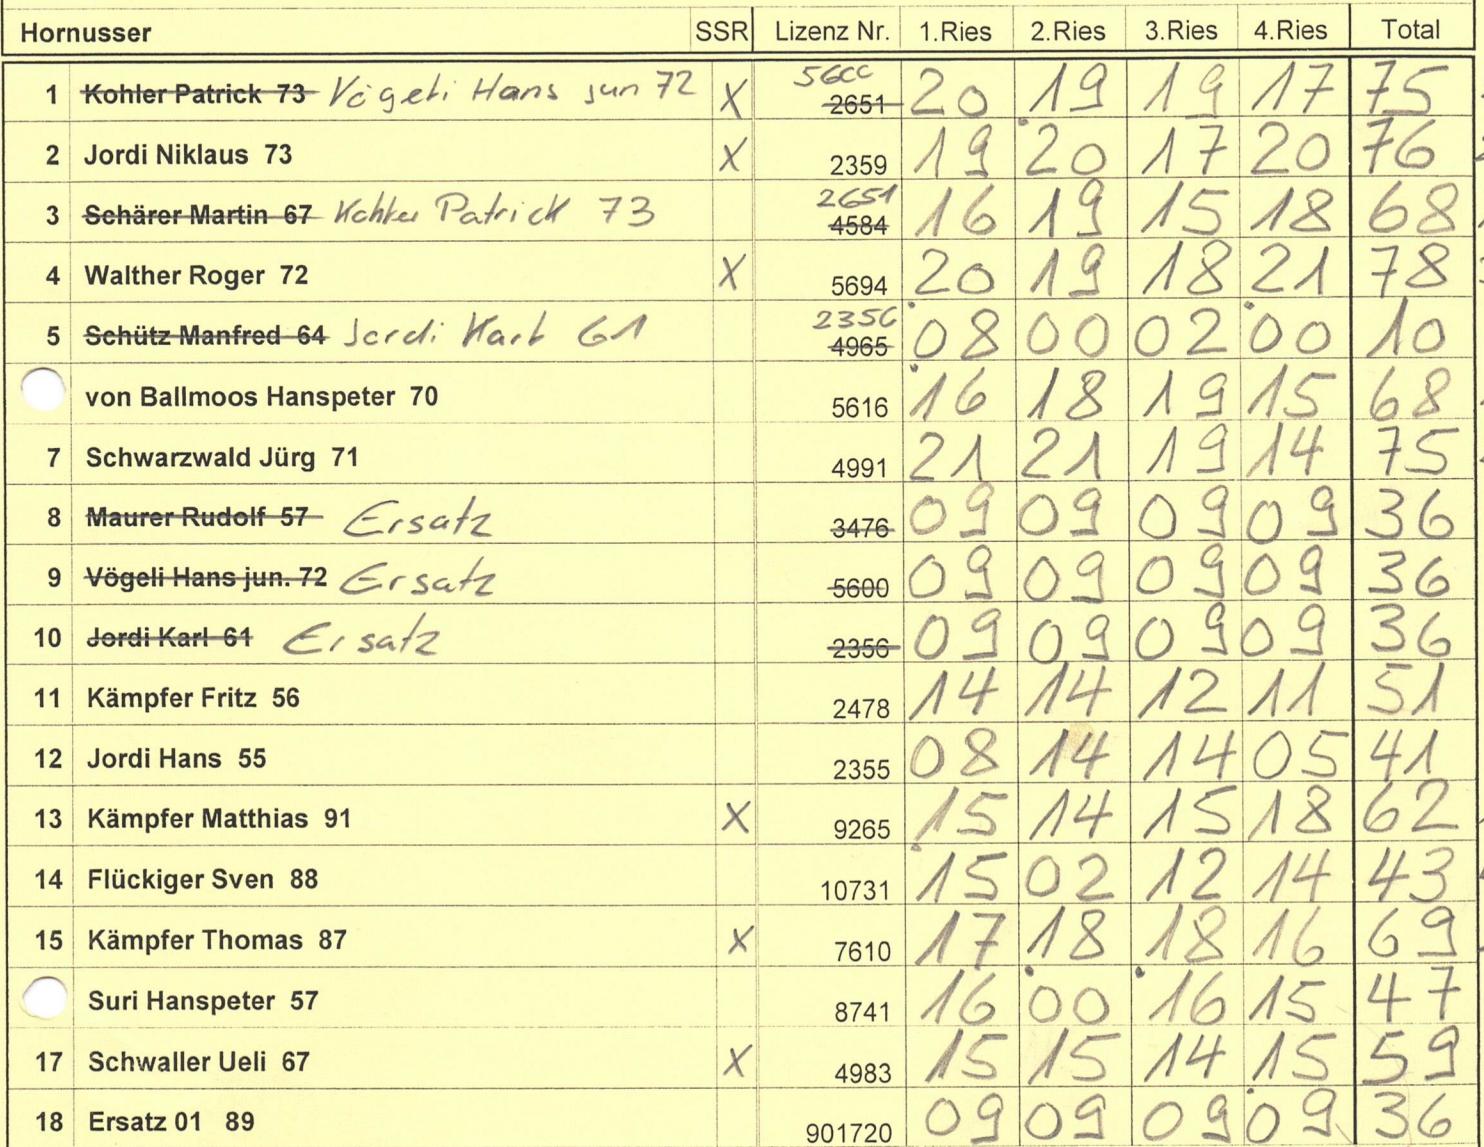 Hornusser SSR Lizenz Nr. 1.Ries 2.Ries 3.Ries 4.Ries Total
1 Kohler Patrick 73 Vögeli Hans jun 72 X 5600 2651 20 19 19 17 75
2 Jordi Niklaus 73 X 2359 19 20 17 20 76
3 Schärer Martin 67 Kohler Patrick 73 2651 4584 16 19 15 18 68
4 Walther Roger 72 X 5694 20 19 18 21 78
5 Schütz Manfred 64 Jordi Karl 61 2356 4965 08 00 02 00 10
von Ballmoos Hanspeter 70 5616 16 18 19 15 68
7 Schwarzwald Jürg 71 4991 21 21 19 14 75
8 Maurer Rudolf 57 Ersatz 3476 09 09 09 09 36
9 Vögeli Hans jun. 72 Ersatz 5600 09 09 09 09 36
10 Jordi Karl 61 Ersatz 2356 09 09 09 09 36
11 Kämpfer Fritz 56 2478 14 14 12 11 51
12 Jordi Hans 55 2355 08 14 14 05 41
13 Kämpfer Matthias 91 X 9265 15 14 15 18 62
14 Flückiger Sven 88 10731 15 02 12 14 43
15 Kämpfer Thomas 87 X 7610 17 18 18 16 69
Suri Hanspeter 57 8741 16 00 16 15 47
17 Schwaller Ueli 67 X 4983 15 15 14 15 59
18 Ersatz 01 89 901720 09 09 09 09 36